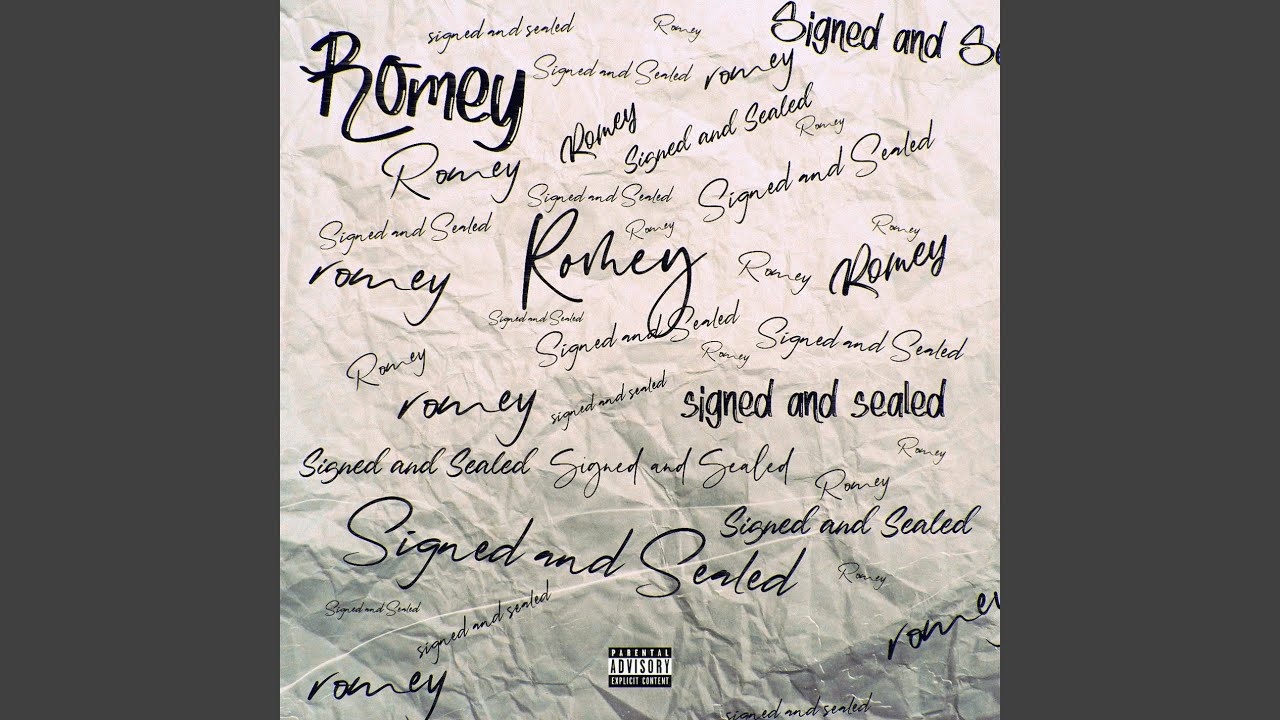 signed and sealed
Romey
Signed and Se
Romey
Signed and Sealed
romey
Romey
Signed and Sealed
Romey
Romey
Signed and Sealed
Signed and Sealed
Signed and Sealed
Romey
Romey
romey
Romey
Romey
Romey
Signed and Sealed
Signed and Sealed
Signed and Sealed
Romey
Romey
romey
signed and sealed
signed and sealed
Signed and Sealed
Signed and Sealed
Romey
Romey
Signed and Sealed
Signed and Sealed
Romey
Signed and Sealed
signed and sealed
romey
romey
PARENTAL
ADVISORY
EXPLICIT CONTENT
signed and sealed